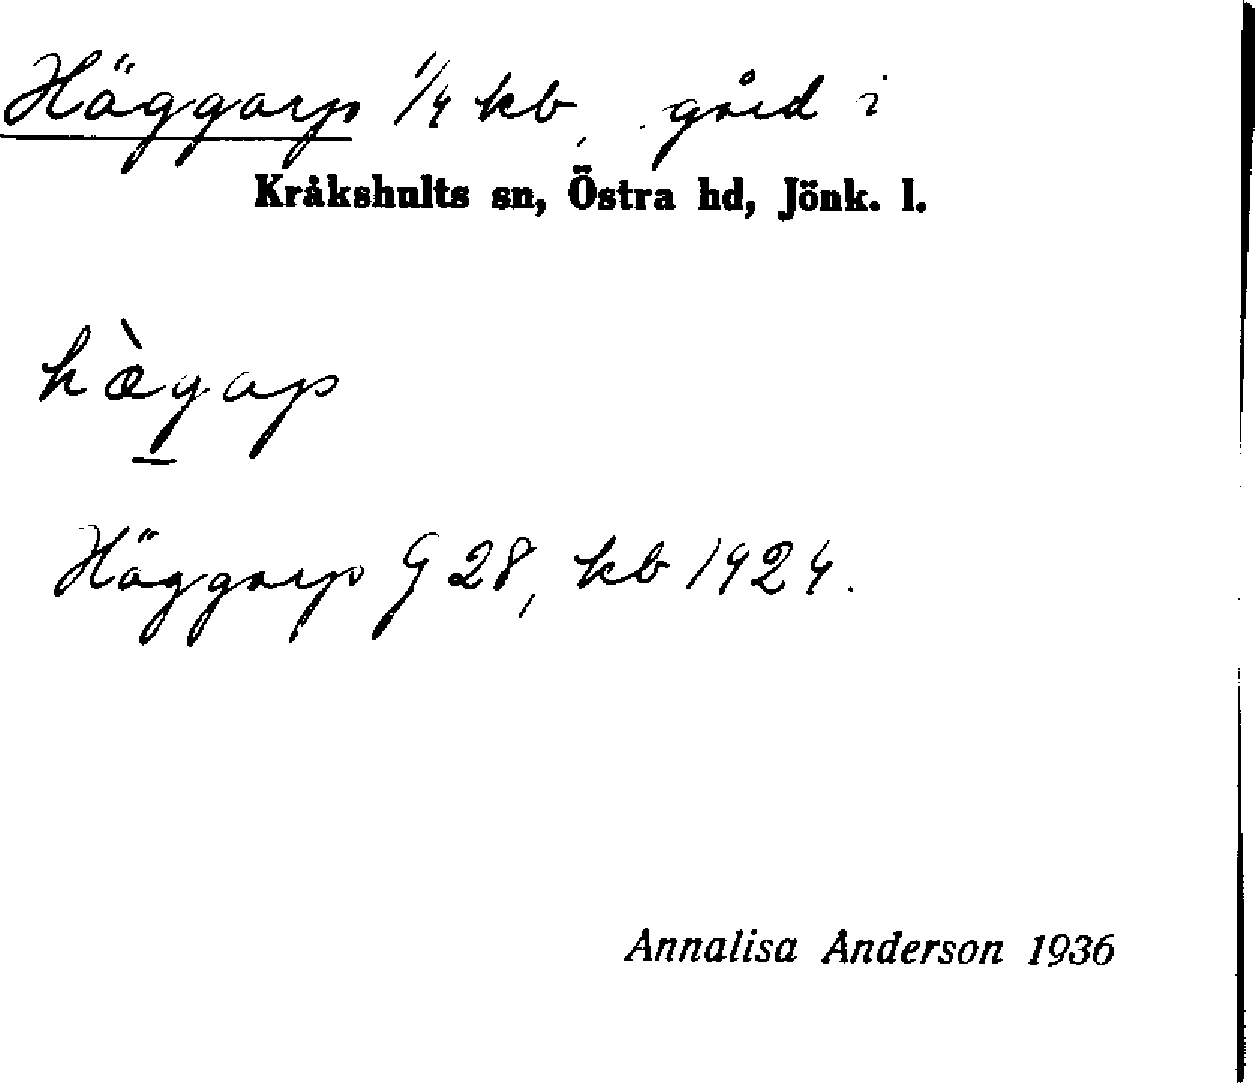 Häggarp 1/4 kb, gård i
Kråkshults sn, Östra hd, Jönk. l.
hæ̀gap
Häggarp G 28, kb 1924.
Annalisa Anderson 1936